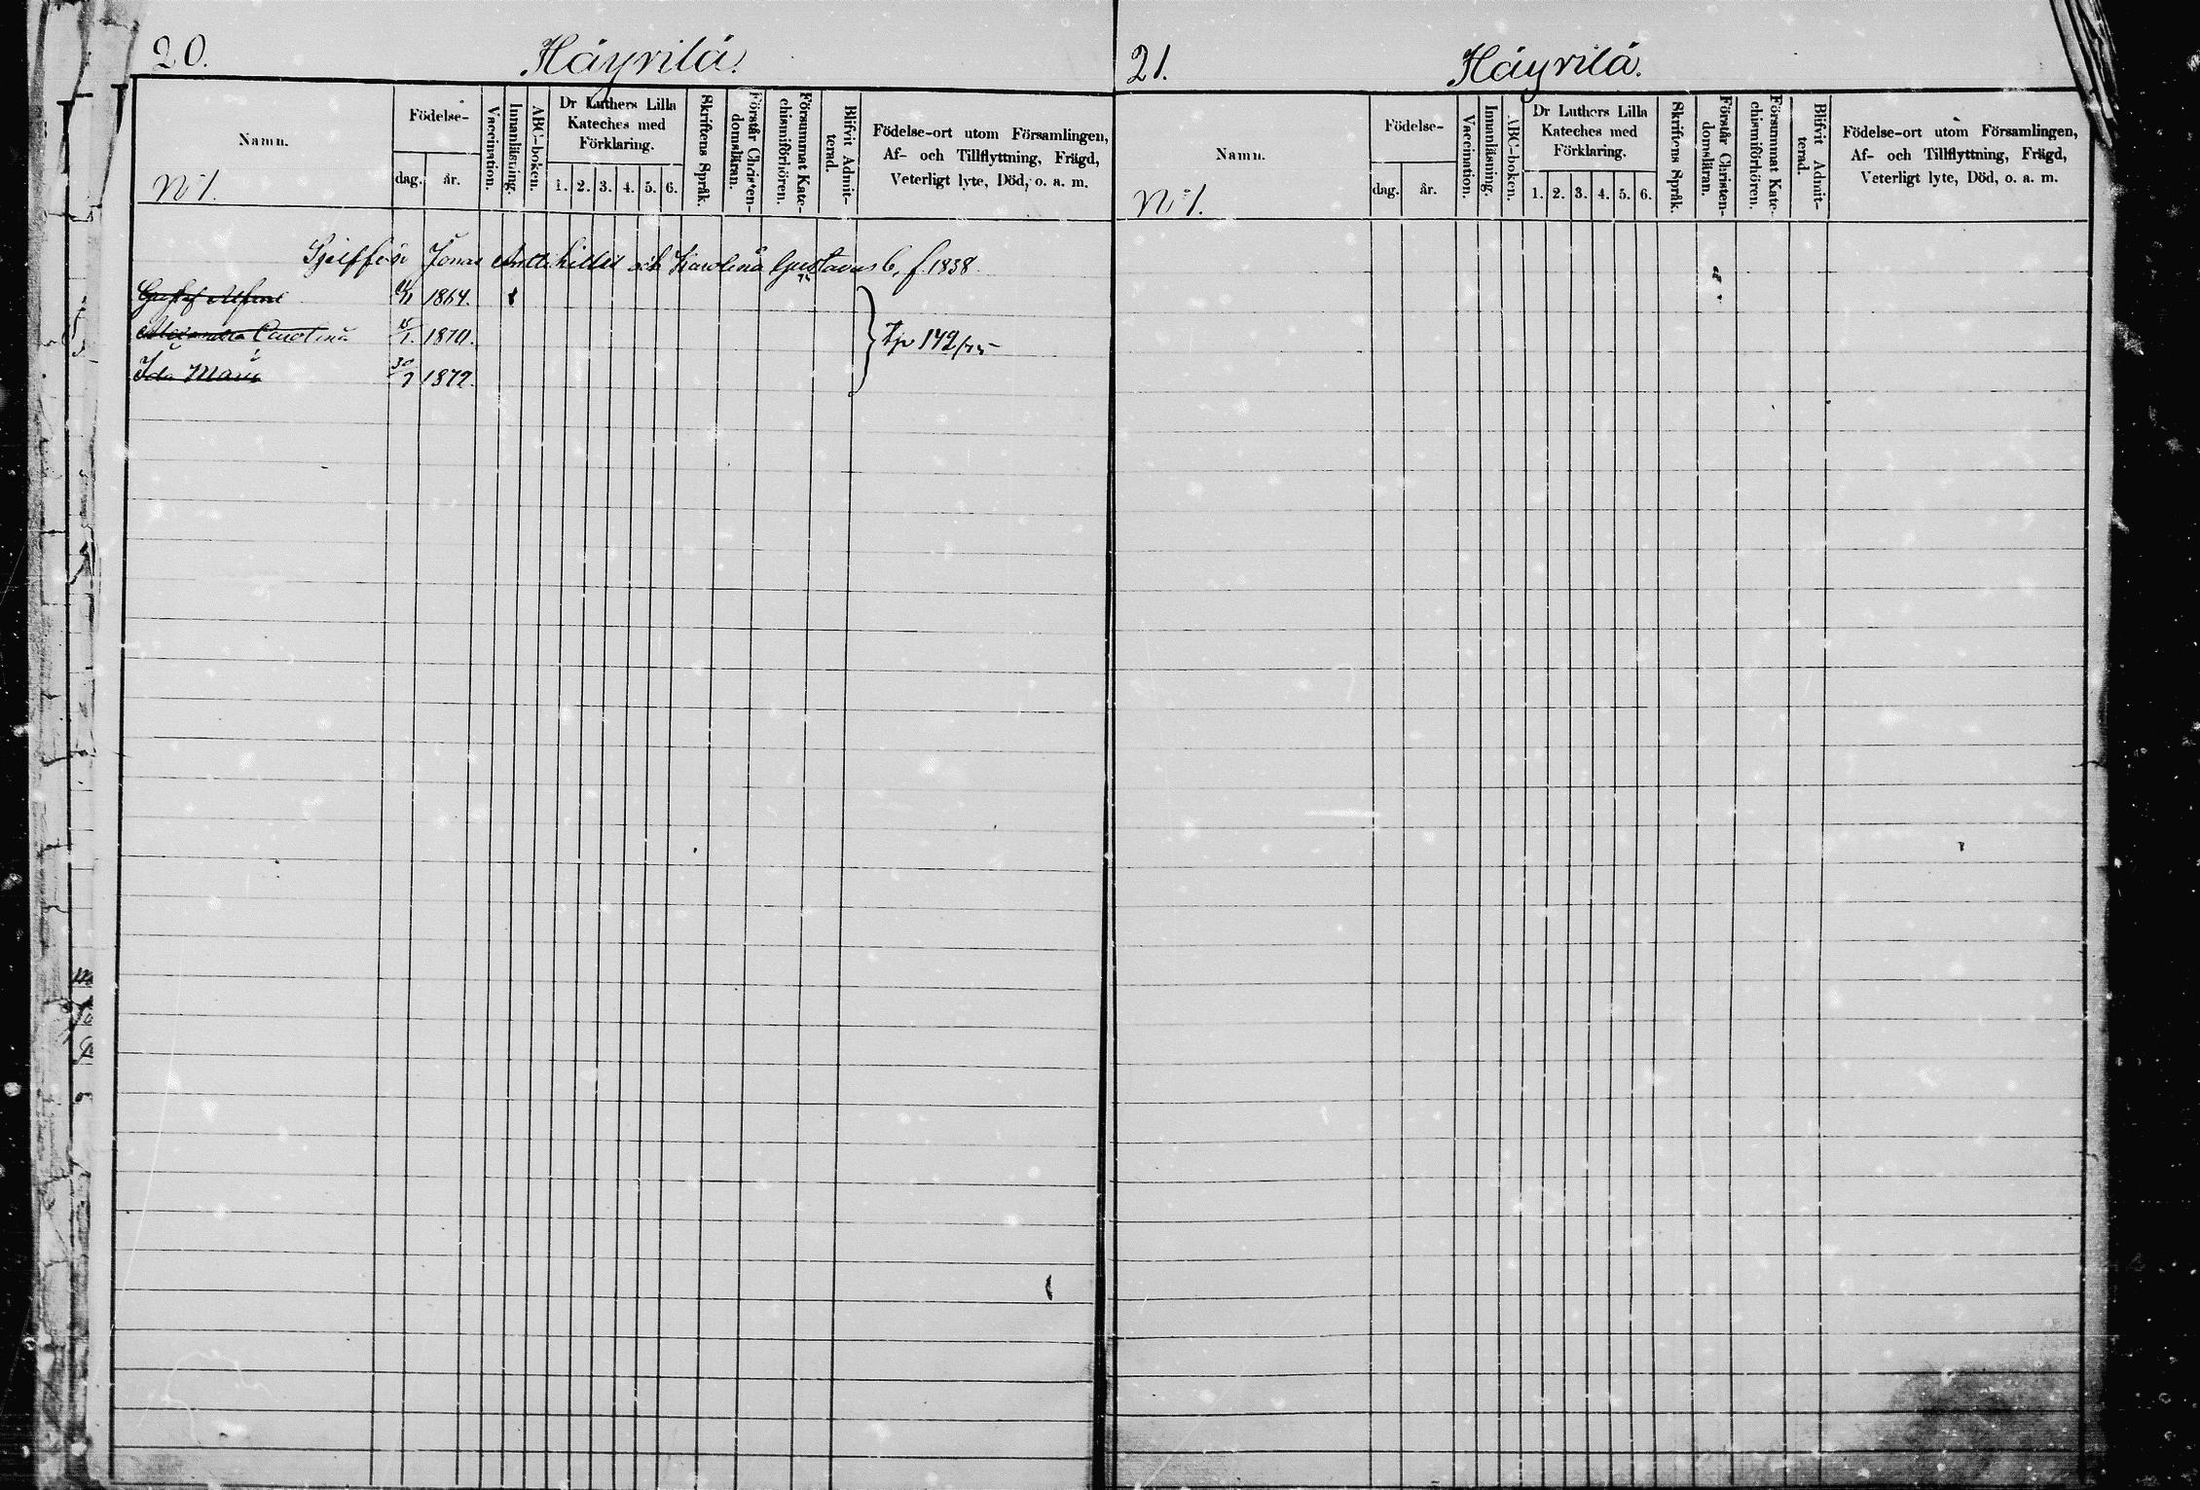 20.
Häyrilä.
Namn.
Födelse-
dag.
år.
Vaccination.
Innanläsning.
ABC-boken.
Dr Luthers Lilla
Kateches med
Förklaring.
1. 2. 3. 4. 5. 6.
Skriftens Språk.
Förstår Christen-
domsläran.
Försummat Kate-
chismiförhören.
Blifvit Admit-
terad.
Födelse-ort utom Församlingen,
Af- och Tillflyttning, Frägd,
Veterligt lyte, Död, o. a. m.
N:o 1.
Jonas och Karolina Gustavus b, f. 1838
Gustaf 1864.
Alexandra Carolina 1870.
Ida Maria 30/7 1872.
142/75
21.
Häyrilä.
Namn.
Födelse-
dag.
år.
Vaccination.
Innanläsning.
ABC-boken.
Dr Luthers Lilla
Kateches med
Förklaring.
1. 2. 3. 4. 5. 6.
Skriftens Språk.
Förstår Christen-
domsläran.
Försummat Kate-
chismiförhören.
Blifvit Admit-
terad.
Födelse-ort utom Församlingen,
Af- och Tillflyttning, Frägd,
Veterligt lyte, Död, o. a. m.
N:o 1.